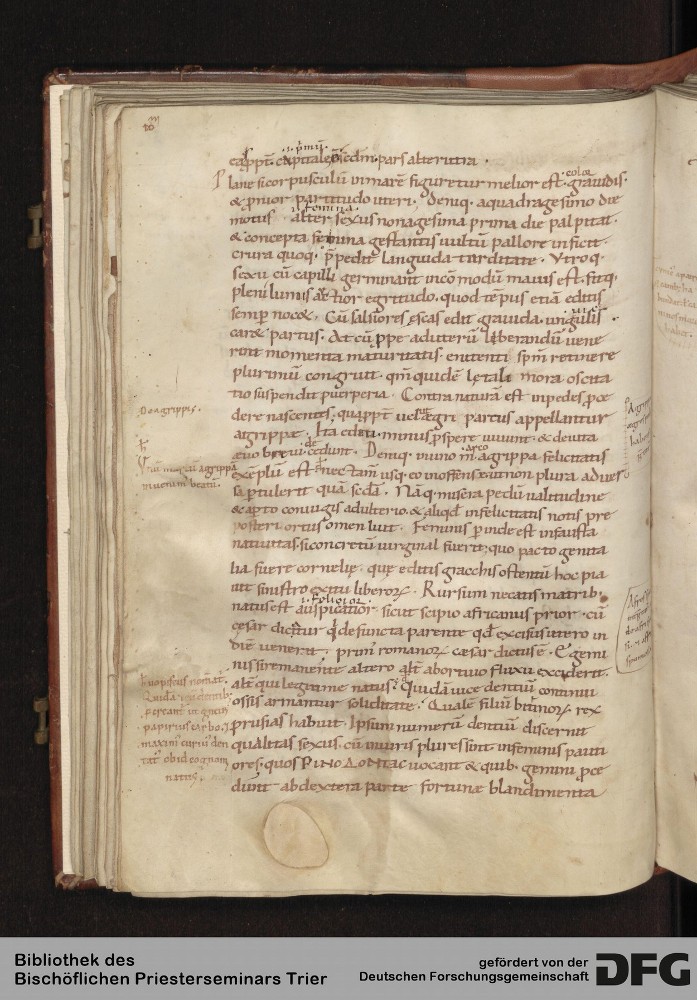 capitale
pars alterutra
Plane si corpusculū in mare figuretur melior est color grauidis.
& ꝓnior partitudo uteri. Deniq. a quadragesimo die
motus. alter sexus nonagesima prima die palpitat.
& concepta femina gestantis uultū pallore inficit.
crura quoq. p̄pedit languida tarditate. Vtroq.
sexu cū capilli germinant incōmodū maius est. fitq.
pleni lunis auctior egritudo. quod tēpus etiā editis
semp nocet. Cū salsiores escas edit grauida. unguiƚis
caret partus. At cū ꝓpe ad uterū liberandū uene
rint momenta maturitatis. enitenti spm̄ retinere
plurimū congruit. qm̄ quidē letali mora oscita
tio suspendit puerperia. Contra naturā est inpedes ꝓce
dere nascentes. quappt̄ uelut egri partus appellantur
agrippe. Ita editi minus ꝓspere uiuunt. & de uita
æuo breui cedunt. Deniq. in uno m̄. agrippa felicitatis
exēplū est. nec tam̄ usq. eo inoffense. ut non plura aduer
sa ꝑtulerit quā secda. Nāq. misera pedū ualitudine
& aꝑto coniugis adulterio. & aliqd̄ infelicitatis notis pre
posteri ortus omen luit. Feminis ꝑinde est infausta
natiuitas. si concretū uirginal fuerit. quo pacto genita
lia fuere cornelię. quę editis gracchis ostentū hoc pia
uit sinistro exitu liberoꝝ. Rursum necatis matrib.
natus est auspicatior. sicut scipio africanus prior. cū
cesar dictatur qd̄ defuncta parente qd̄ excisus utero in
diē uenerit. prim' romanoꝝ cæsar dictus ē. E gemi
nis si remanente altero alt̄ abortiuo fluxu exciderit.
alt̄ qui legitime natus. Quidā uice dentiū continui
ossis armantur soliditate. Quale filiū bitinoꝝ rex
prusias habuit. Ipsum numerū dentiū discernit
qualitas sexus. cū in uiris plures sint in feminis pauci
ores. quos KINOΔONTAC uocant & quib. gemini ꝓce
dunt ab dextera parte fortunæ blandimenta
De agrippis.
agrippā
beatū.
uopiscus
papirius carbo.
ob id eo gnom
natus
Bibliothek des
Bischöflichen Priesterseminars Trier
gefördert von der
Deutschen Forschungsgemeinschaft
DFG